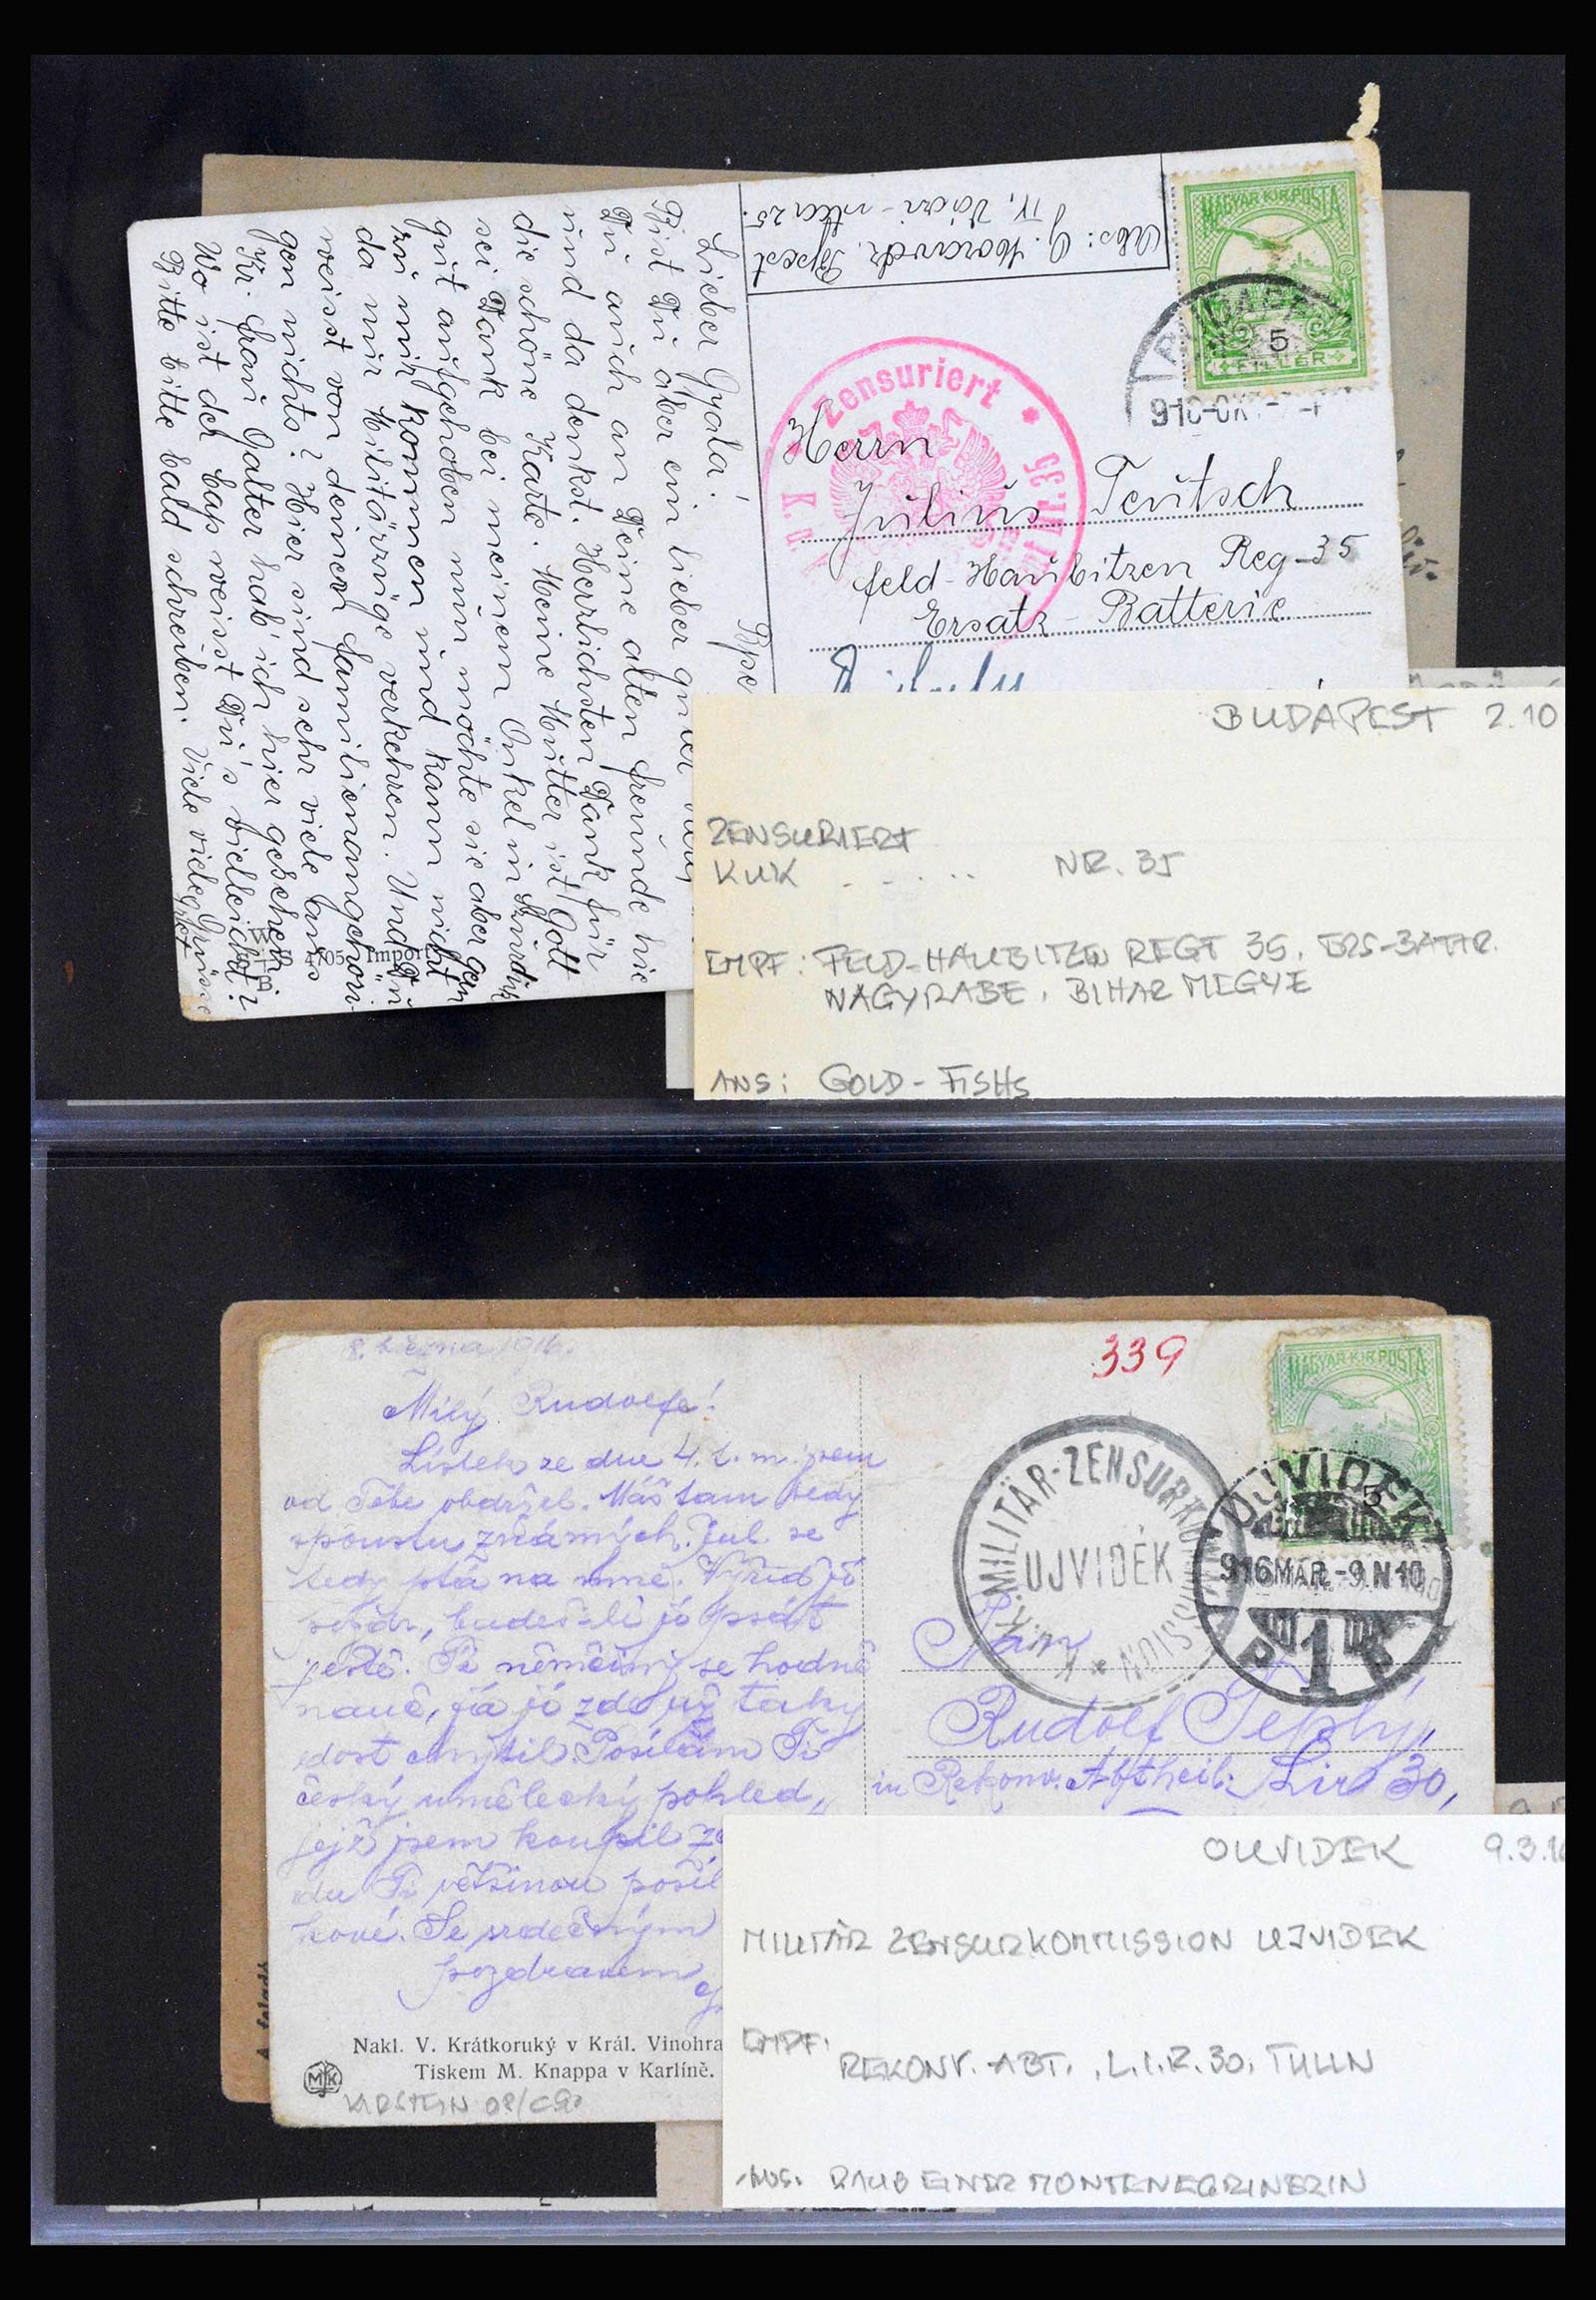 Abs: G.
Bpest
IV. Váci-utca 25.
MAGYAR KIR. POSTA
5
FILLÉR
Zensuriert
K. u. K.
Nr. 35
Herrn
Julius Teutsch
Feld-Haubitzen Reg-35
Ersatz-Batterie
Bpe
Lieber Gyula!
Bist Du aber ein lieber guter
Du auch an Deine alten Freunde hie
und da denkst. Herrlichsten Dank für
die schöne Karte. Meine Mutter ist Gott
sei Dank bei meinem Onkel in
gut aufgehoben nun möchte sie aber gern
zu mir kommen und kann nicht
da nur Militärzüge verkehren. Und Du
weisst von deinen Familienangehöri-
gen nichts? Hier sind sehr viele aus
Kr. Frau Galter hab' ich hier gesehen.
Wo ist der weisst Du's vielleicht?
Bitte bitte bald schreiben. Viele viele Grüsse
4705 Import
BUDAPEST 2.10
ZENSURIERT
KUK NR. 35
EMPF: FELD-HAUBITZEN REGT 35, ERS-BATTR.
NAGYRABE, BIHAR MEGYE
ANS: GOLD-FISHS
8. března 1916.
339
MAGYAR KIR. POSTA
5
Milý Rudolfe!
Lístek ze dne 4. t. m. jsem
od Tebe obdržel. Máš tam tedy
spoustu známých. Jul. se
tedy ptá na mne. Vyřiď jí
budeš-li jí psát
ještě. Ti němčiny se hodně
nauč, já jí zde už taky
dost chytil. Posílám Ti
český umělecký pohled,
jejž jsem koupil
du Ti většinou posíl
kové. Se srdečným
pozdravem
K.K. MILITÄR-ZENSURKOMMISSION
UJVIDÉK
UJVIDÉK
916 MÁR. -9 N 10
1
Pan
Rudolf Teplý,
in Rekonv. Abtheil. Lir 30,
Nakl. V. Krátkoruký v Král. Vinohra
Tiskem M. Knappa v Karlíně.
MK
A feladó
OUVIDEK 9.3.16
MILITÄR ZENSURKOMMISSION UJVIDEK
EMPF:
REKONV. ABT., L.I.R. 30, TULLN
ANS. RAUB EINER MONTENEGRINERIN